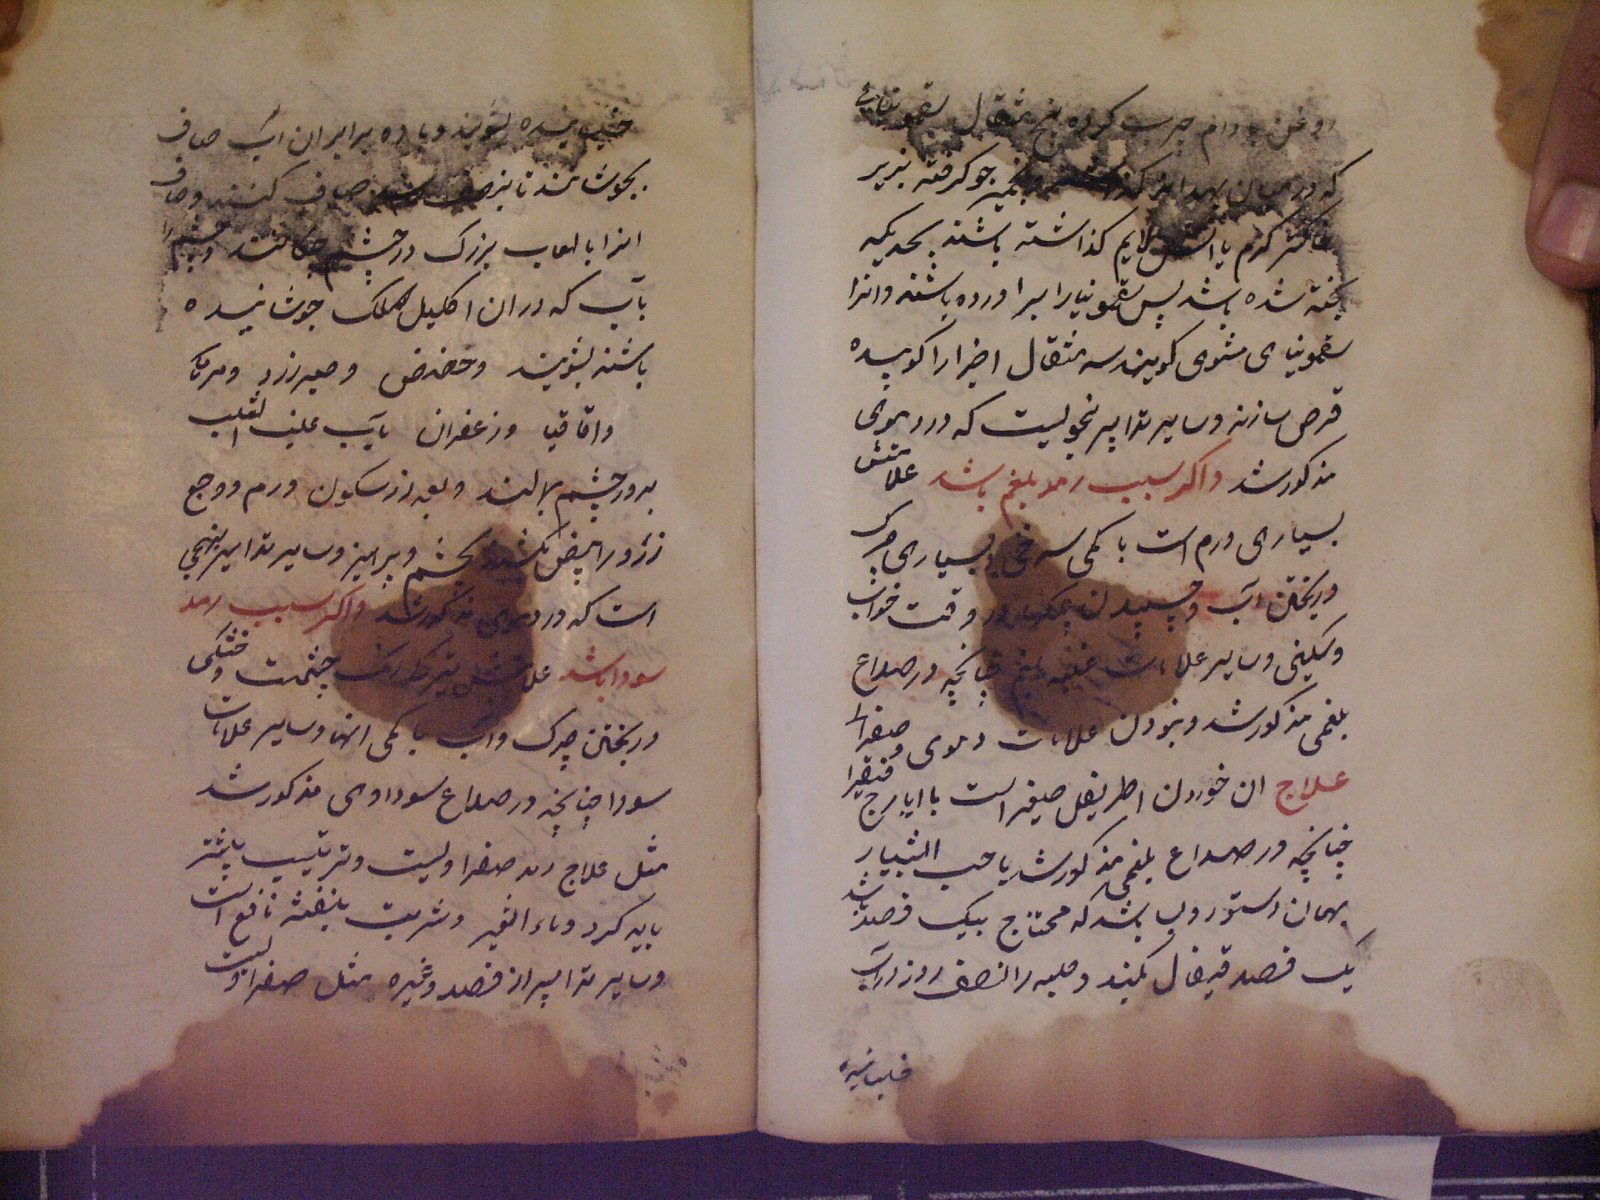 روغن بادام چرب کرده پنج مثقال سقمونیا
که در میان بهدانه و بخمیر جو گرفته بزیر
خاکستر گرم یا آتش ملایم گذاشته باشند بحدیکه
پخته شده باشد پس سقمونیا را برآورده باشند و انرا
سقمونیای مشوی گویند سه مثقال اجزا را کوبیده
قرص سازند و سایر تدابیر نحویست که در دموی
مذکور شد و اگر سبب رمد بلغم باشد علامتش
بسیاری ورم است با کمی سرخی و بسیاری چرک
و ریختن آب و چسبیدن پلکها در وقت خواب
و سنگینی و سایر علامات غلبه بلغم چنانچه در صداع
بلغمی مذکور شد و نبودن علامات دموی و صفرا
علاج ان خوردن اطریفل صغیر است با ایارج فیقرا
چنانچه در صداع بلغمی مذکور شد یا حب الشبیار
بهمان دستور ولی باشد که محتاج بیک فصد شد
یک فصد قیفال کنند و حلبه را نصف روز در آب
خیسانیده
خیسانیده بشویند و باده برابر ان آب صاف
بجوشانند تا بنصف رسد صاف کنند و صاف
انرا با لعاب بزرک در چشم چکانند و چشم را
بآب که در ان اکلیل الملک جوشانیده
باشند بشویند و حضض و صبر زرد و مرمکی
و اقاقیا و زعفران بآب عنب الثعلب
بدور چشم بمالند و بعد از سکون ورم و وجع
زرور ابیض بکشند بچشم و پرهیز و سایر تدابیر بنهجی
است که در دموی مذکور شد و اگر سبب رمد
سودا باشد علامتش تیرگی رنگ چشمست و خشکی
و ریختن چرک و آب با کمی انها و سایر علامات
سودا چنانچه در صداع سوداوی مذکور شد
مثل علاج رمد صفراویست و ترتیب بیشتر
باید کرد و ماء الشعیر و شربت بنفشه نافع است
و سایر تدابیر از فصد و غیره مثل صفراویست